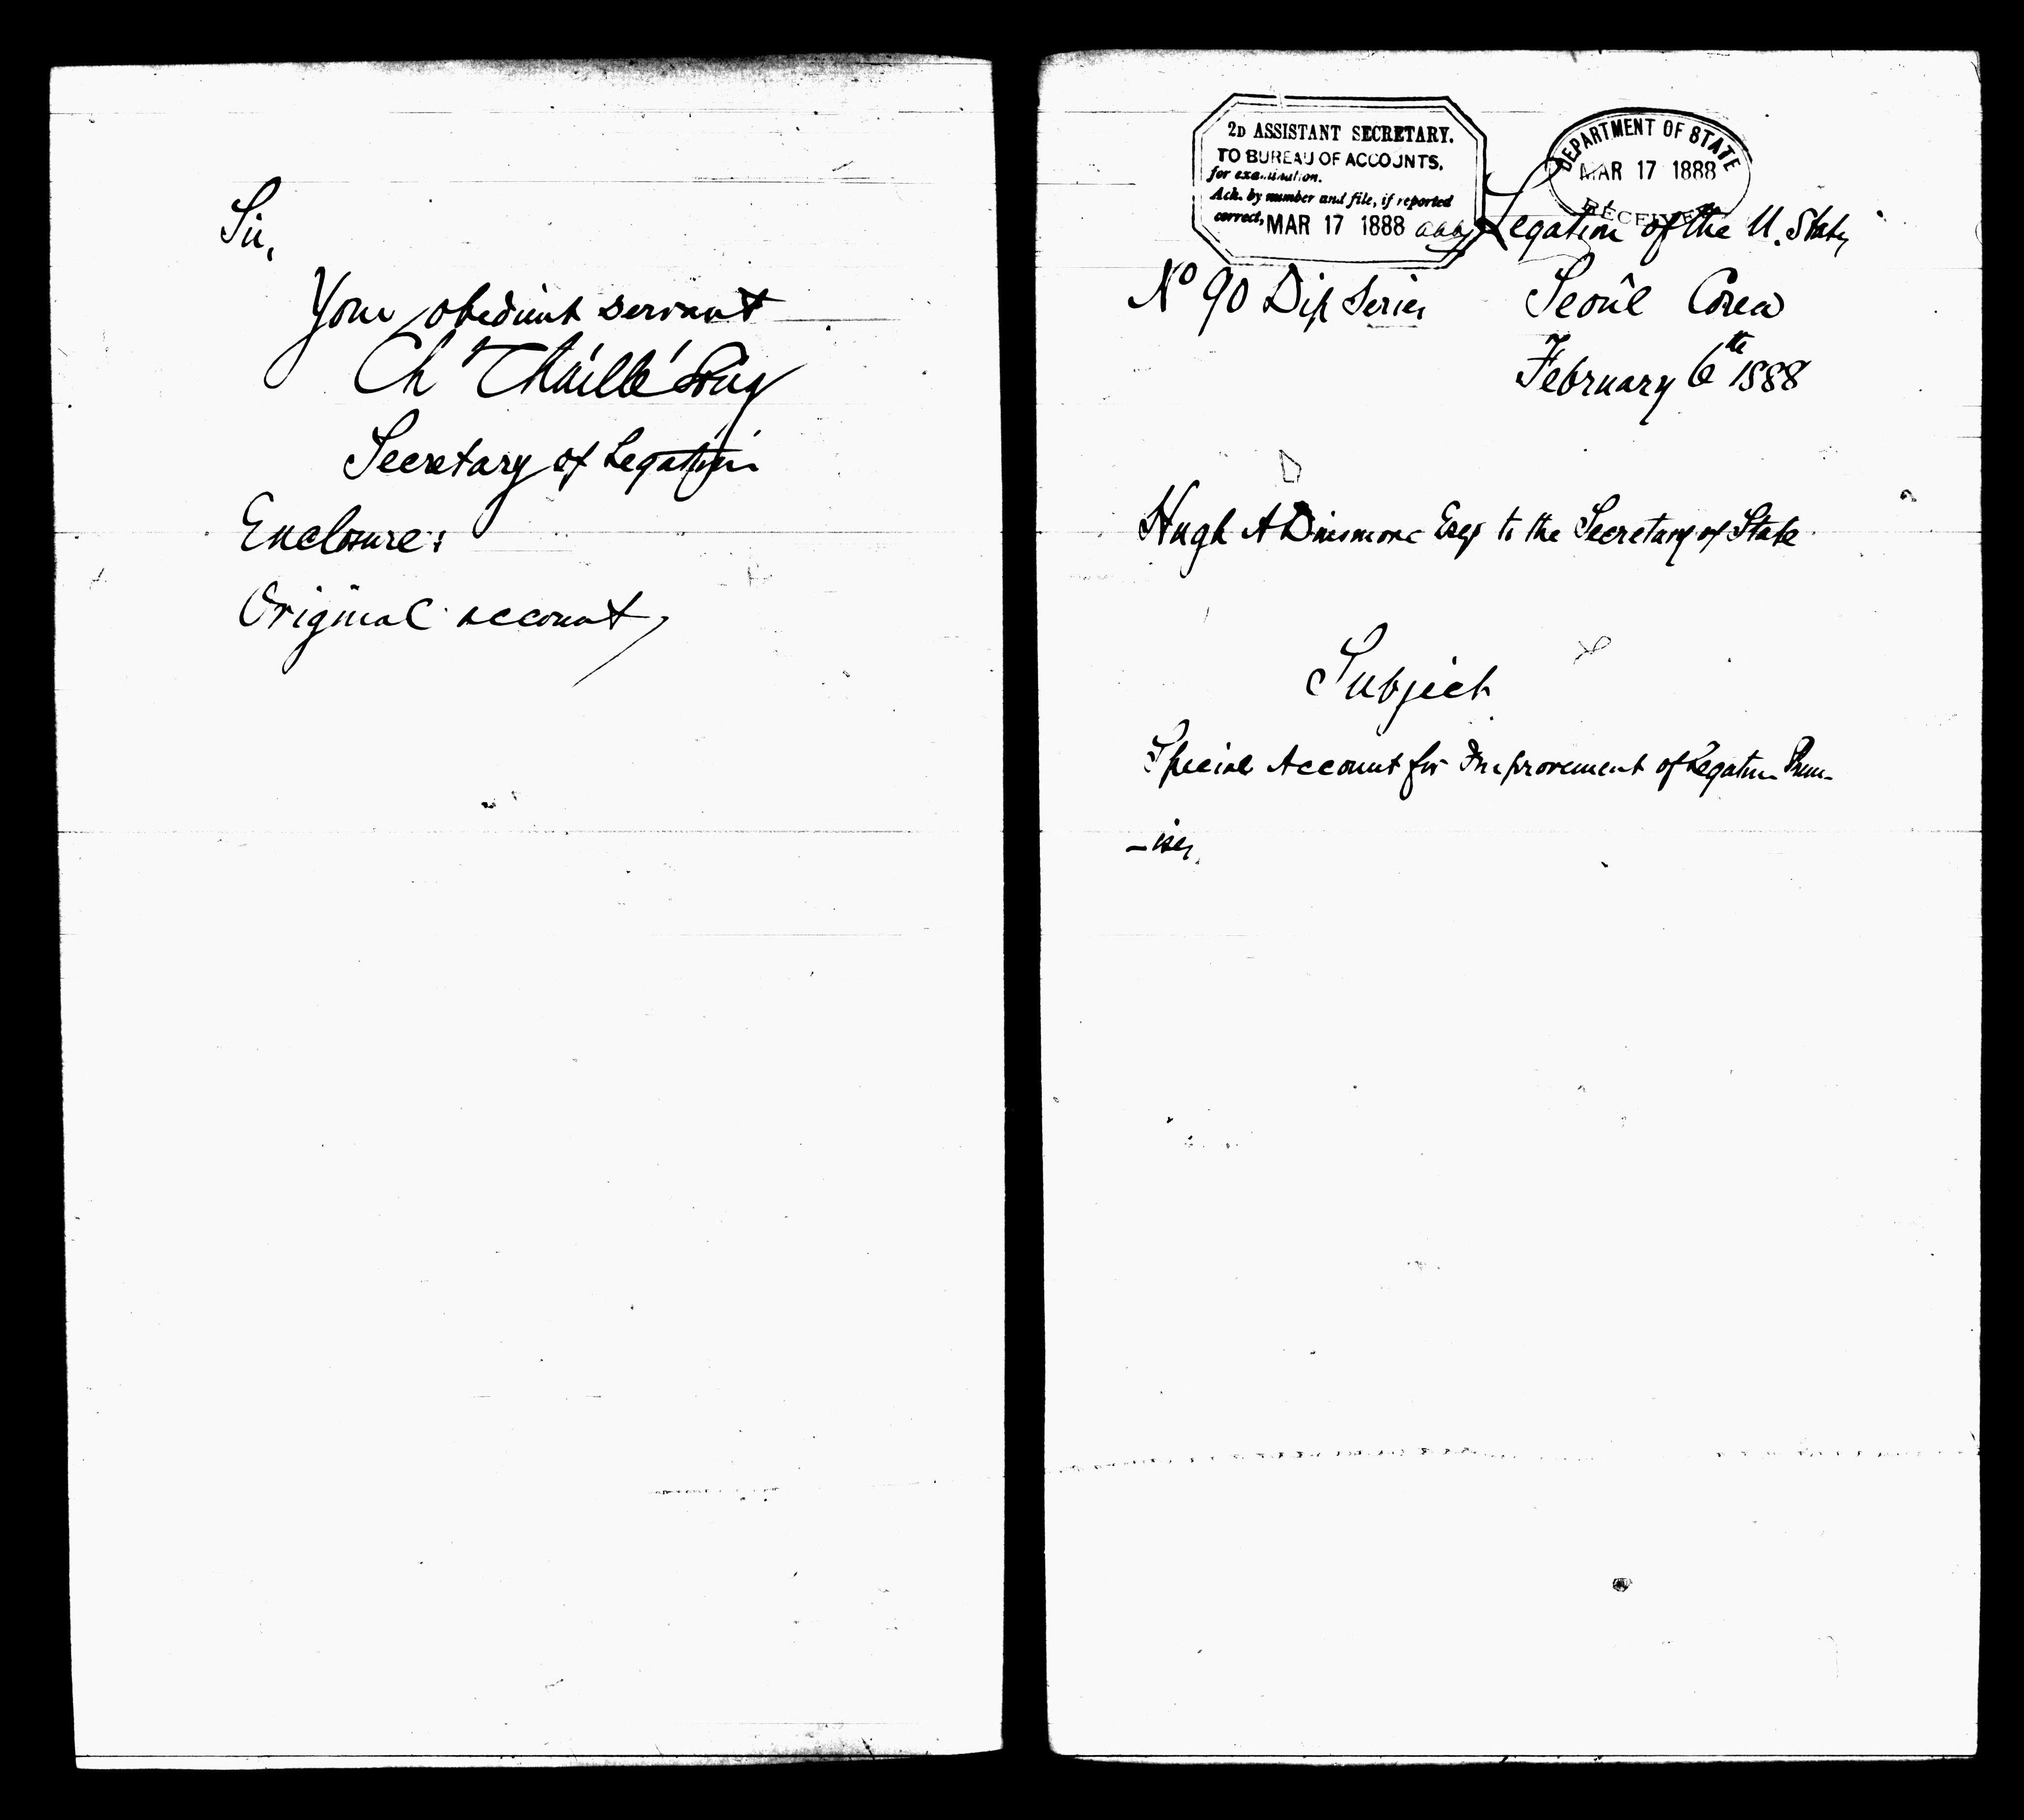 Sir,
Your obedient servant
Ch Chaillé Long
Secretary of Legation
Enclosure:
Original account
2D ASSISTANT SECRETARY.
TO BUREAU OF ACCOUNTS,
for examination.
Ack. by number and file, if reported
correct, MAR 17 1888
DEPARTMENT OF STATE
MAR 17 1888
RECEIVED
Legation of the U. States
No 90 Dip Series
Seoûl Corea
February 6th 1888
Hugh A Dinsmore Esq to the Secretary of State
Subject
Special Account for Improvement of Legation Prem-
-ises